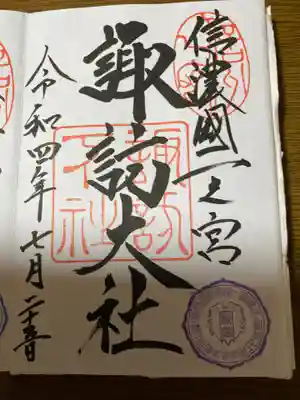 信濃國一之宮
諏訪大社
令和四年七月二十五日
諏訪大社